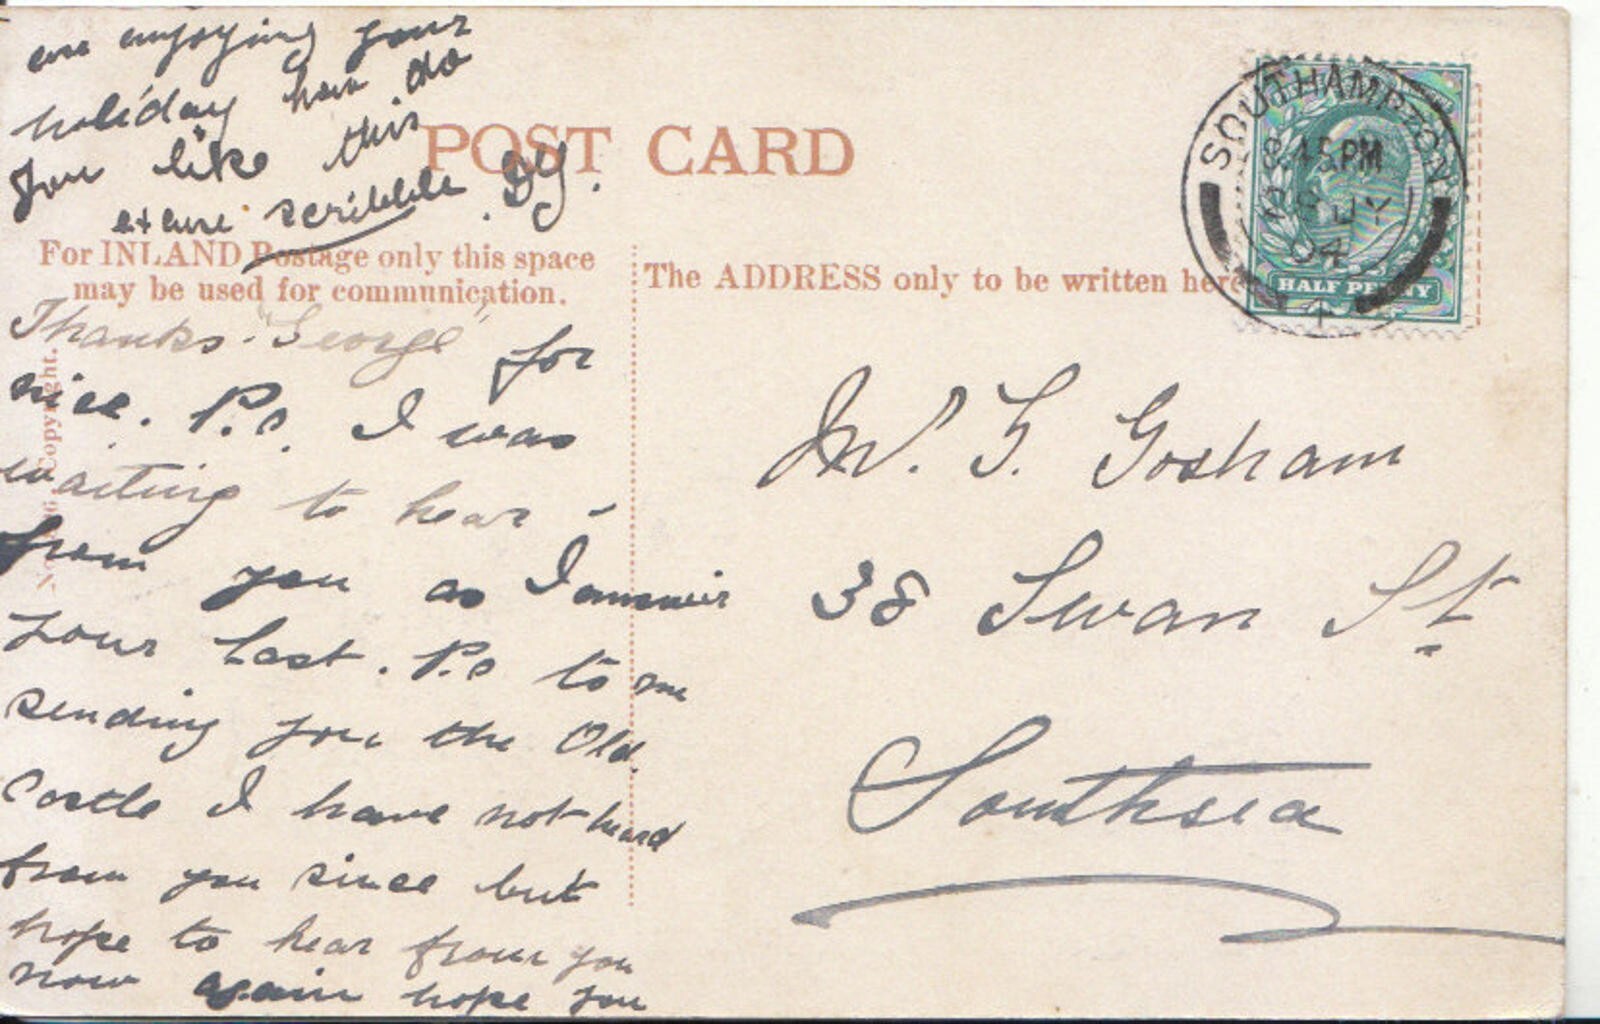 are enjoying your
holiday how do
you like this
excuse scribble. DY.
POST CARD
For INLAND Postage only this space
may be used for communication.
The ADDRESS only to be written here
SOUTHAMPTON
15 PM
JY
04
HALF PENNY
Copyright.
Thanks. "George" for
nice. P.C. I was
waiting to hear -
from you as I answeir
your last. P.C to me
sending you the Old.
Castle I have not heard
from you since but
hope to hear from you
now again hope you
Gosham
38 Swan St
Southsea